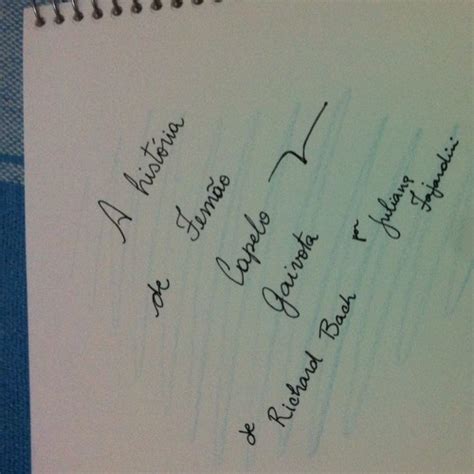 A história
de Fernão
Capelo
Gaivota
de Richard Bach
por Juliana
Fajardini